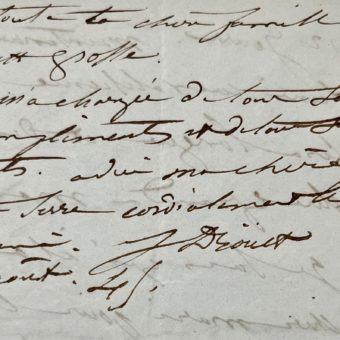 toute ta chère famille
grosse.
m'a chargée de tous
compliments et de tous
adieu ma chère
serre cordialement la
J Droüet
août. 45.